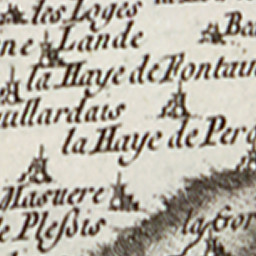 les Loges
ine Lande
Ba
la Haye de Fontain
uillardais
la Haye de Perc
Masuere
le Pleſsis
la Gor